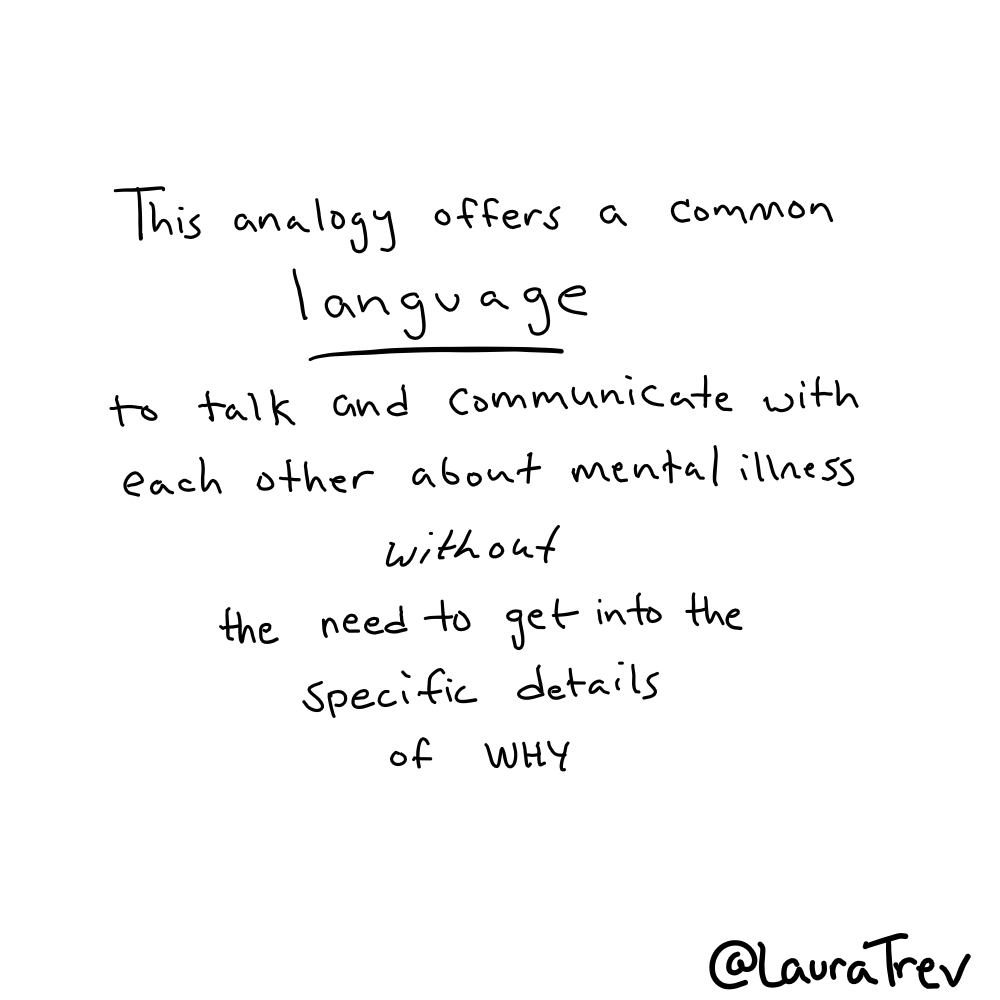 This analogy offers a common
language
to talk and communicate with
each other about mental illness
without
the need to get into the
specific details
of WHY
@LauraTrev